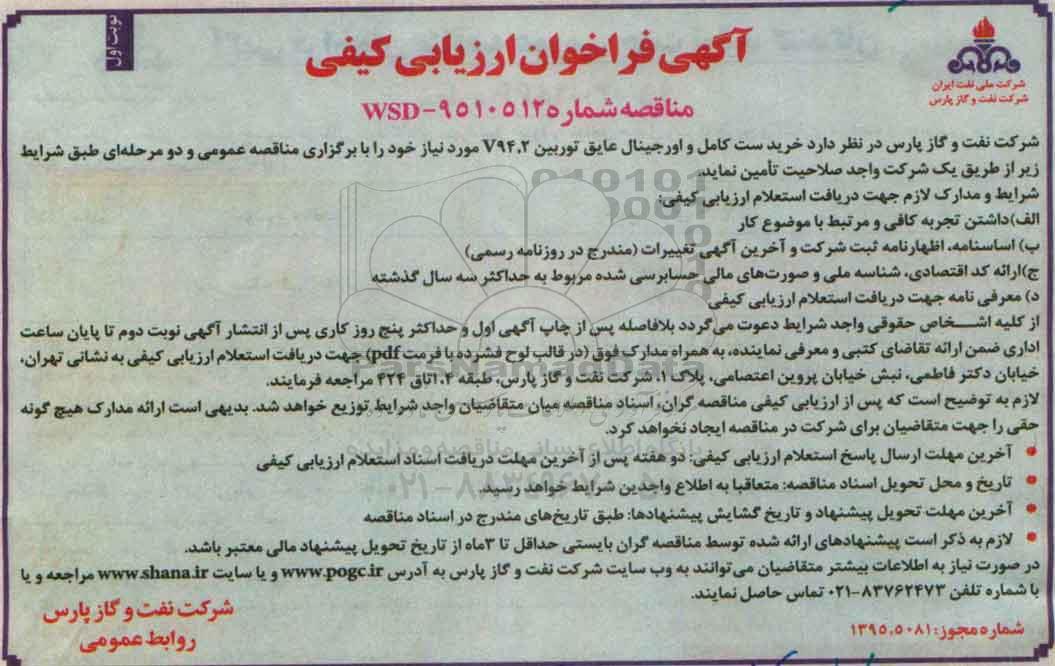 نوبت اول
آگهی فراخوان ارزیابی کیفی
شرکت ملی نفت ایران
شرکت نفت و گاز پارس
مناقصه شماره WSD-۹۵۱۰۵۱۲
شرکت نفت و گاز پارس در نظر دارد خرید ست کامل و اورجینال عایق توربین V۹۴.۲ مورد نیاز خود را با برگزاری مناقصه عمومی و دو مرحله‌ای طبق شرایط
زیر از طریق یک شرکت واجد صلاحیت تأمین نماید.
شرایط و مدارک لازم جهت دریافت استعلام ارزیابی کیفی:
الف)داشتن تجربه کافی و مرتبط با موضوع کار
ب) اساسنامه، اظهارنامه ثبت شرکت و آخرین آگهی تغییرات (مندرج در روزنامه رسمی)
ج)ارائه کد اقتصادی، شناسه ملی و صورت‌های مالی حسابرسی شده مربوط به حداکثر سه سال گذشته
د) معرفی نامه جهت دریافت استعلام ارزیابی کیفی
از کلیه اشخاص حقوقی واجد شرایط دعوت می‌گردد بلافاصله پس از چاپ آگهی اول و حداکثر پنج روز کاری پس از انتشار آگهی نوبت دوم تا پایان ساعت
اداری ضمن ارائه تقاضای کتبی و معرفی نماینده، به همراه مدارک فوق (در قالب لوح فشرده با فرمت pdf) جهت دریافت استعلام ارزیابی کیفی به نشانی تهران،
خیابان دکتر فاطمی، نبش خیابان پروین اعتصامی، پلاک ۱، شرکت نفت و گاز پارس، طبقه ۴، اتاق ۴۲۴ مراجعه فرمایند.
لازم به توضیح است که پس از ارزیابی کیفی مناقصه گران، اسناد مناقصه میان متقاضیان واجد شرایط توزیع خواهد شد. بدیهی است ارائه مدارک هیچ گونه
حقی را جهت متقاضیان برای شرکت در مناقصه ایجاد نخواهد کرد.
• آخرین مهلت ارسال پاسخ استعلام ارزیابی کیفی: دو هفته پس از آخرین مهلت دریافت اسناد استعلام ارزیابی کیفی
• تاریخ و محل تحویل اسناد مناقصه: متعاقبا به اطلاع واجدین شرایط خواهد رسید.
• آخرین مهلت تحویل پیشنهاد و تاریخ گشایش پیشنهادها: طبق تاریخ‌های مندرج در اسناد مناقصه
• لازم به ذکر است پیشنهادهای ارائه شده توسط مناقصه گران بایستی حداقل تا ۳ماه از تاریخ تحویل پیشنهاد مالی معتبر باشد.
در صورت نیاز به اطلاعات بیشتر متقاضیان می‌توانند به وب سایت شرکت نفت و گاز پارس به آدرس www.pogc.ir و یا سایت www.shana.ir مراجعه و یا
با شماره تلفن ۸۳۷۶۲۴۷۳-۰۲۱ تماس حاصل نمایند.
شرکت نفت و گاز پارس
روابط عمومی
شماره مجوز: ۱۳۹۵.۵۰۸۱
ParsNamadData